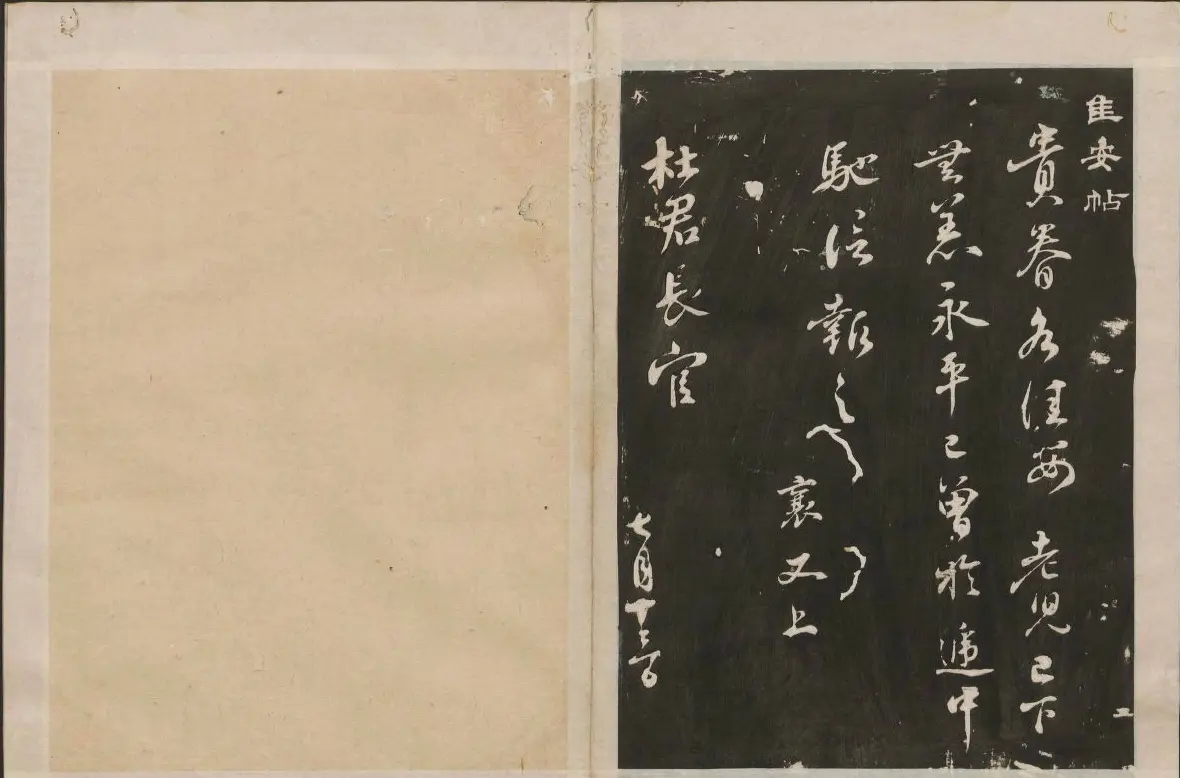 佳安帖
貴眷各佳安 老兒已下
無恙永平已曾於遞中
馳信報之
襄又上
杜君長官
七月十三日